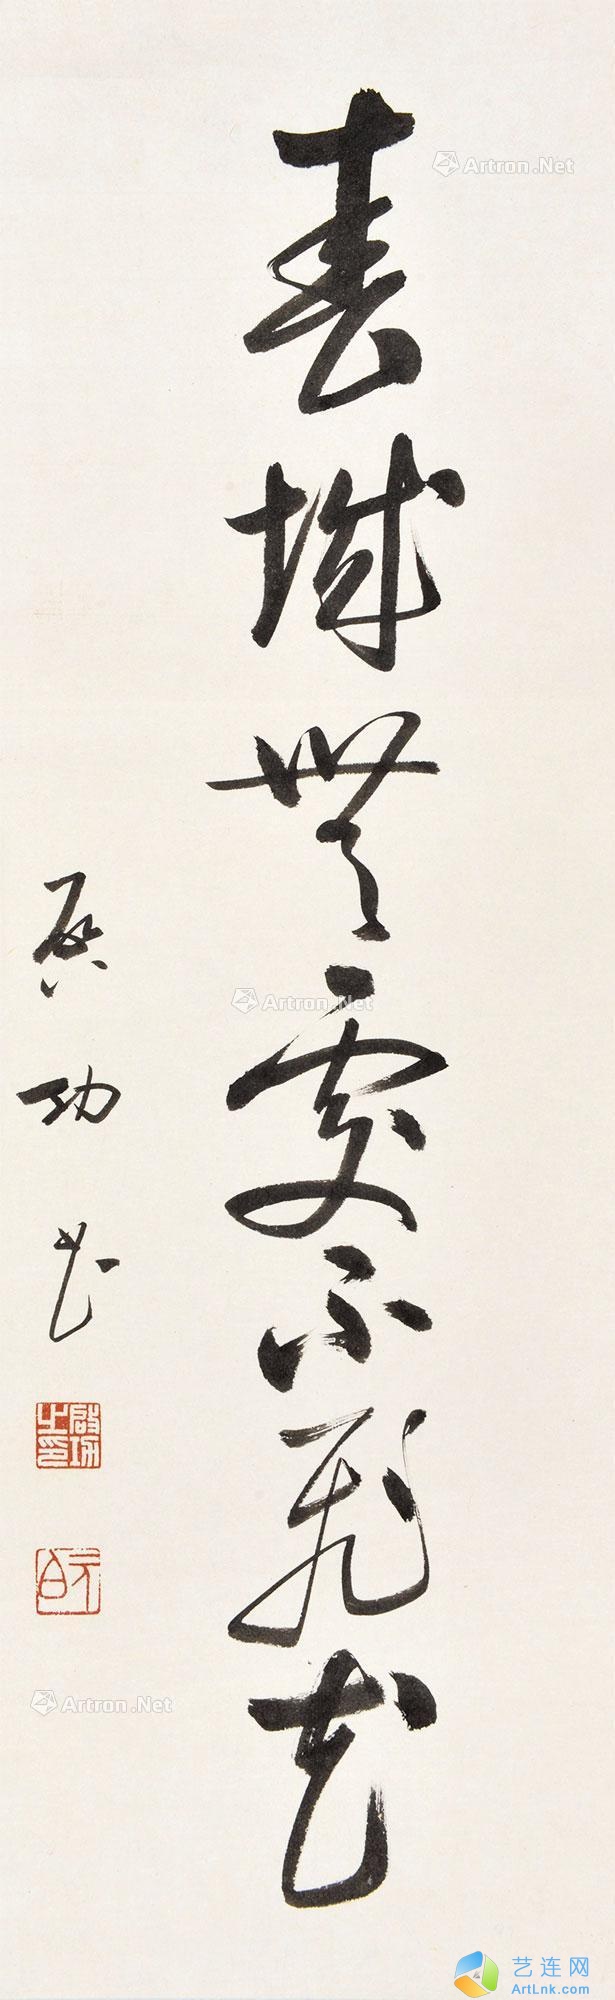 春城無處不飛花
启功书
啟功之印
元白
Artron.Net
Artron.Net
Artron.Net
艺连网
ArtLnk.com